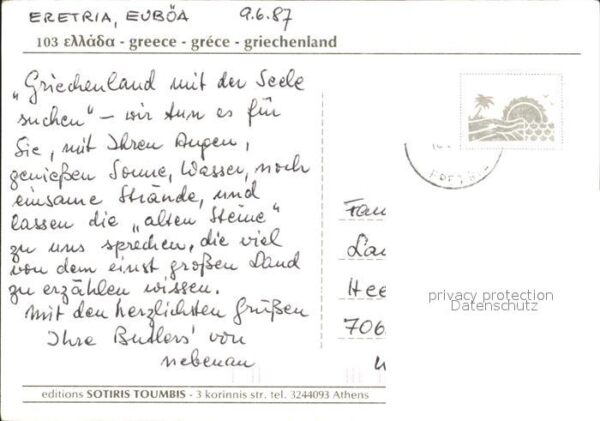 ERETRIA, EUBÖA 9.6.87
103 ελλάδα - greece - gréce - griechenland
„Griechenland mit der Seele
suchen" – wir tun es für
Sie, mit Ihren Augen,
genießen Sonne, Wasser, noch
einsame Strände, und
lassen die „alten Steine"
zu uns sprechen, die viel
von dem einst großen Land
zu erzählen wissen.
Mit den herzlichsten Grüßen
Ihre Butlers' von
nebenan
Fam
Lau
Hee
706
privacy protection
Datenschutz
editions SOTIRIS TOUMBIS - 3 korinnis str. tel. 3244093 Athens